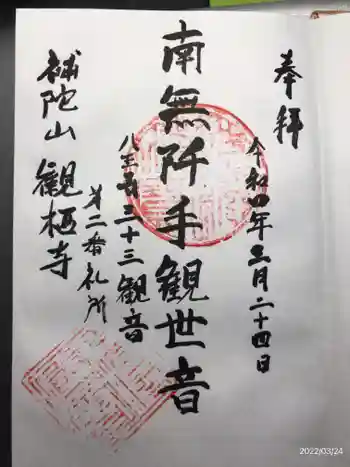 奉拝
令和四年三月二十四日
南無千手観世音
八王子三十三観音
第二番札所
補陀山 観栖寺
2022/03/24